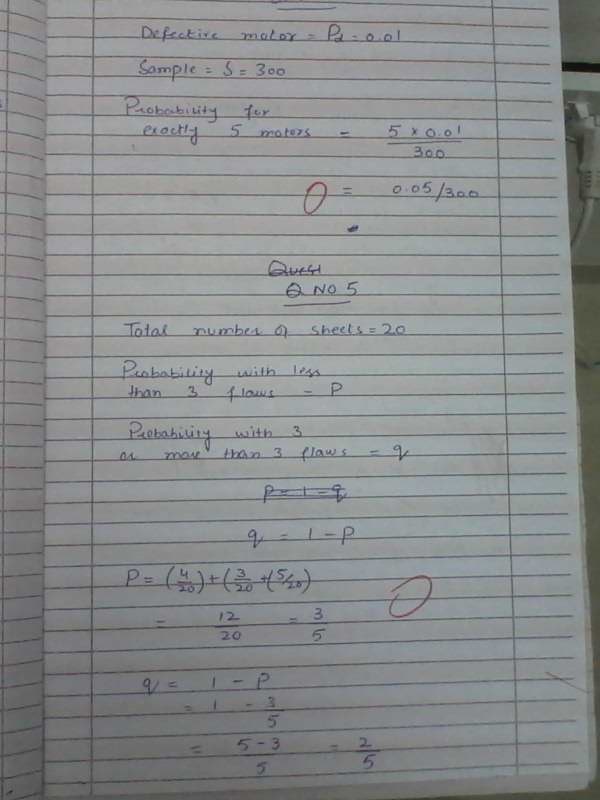 Defective motor = P₂ = 0.01
Sample = S = 300
Probability for
exactly 5 motors = 5 × 0.01 / 300
0 = 0.05/300
Quest
Q NO 5
Total number of sheets = 20
Probability with less
than 3 flaws - P
Probability with 3
or more than 3 flaws = q
P = 1 - q
q = 1 - P
P = (4/20) + (3/20 + (5/20)
0
= 12/20 = 3/5
q = 1 - P
= 1 - 3/5
= 5-3/5 = 2/5